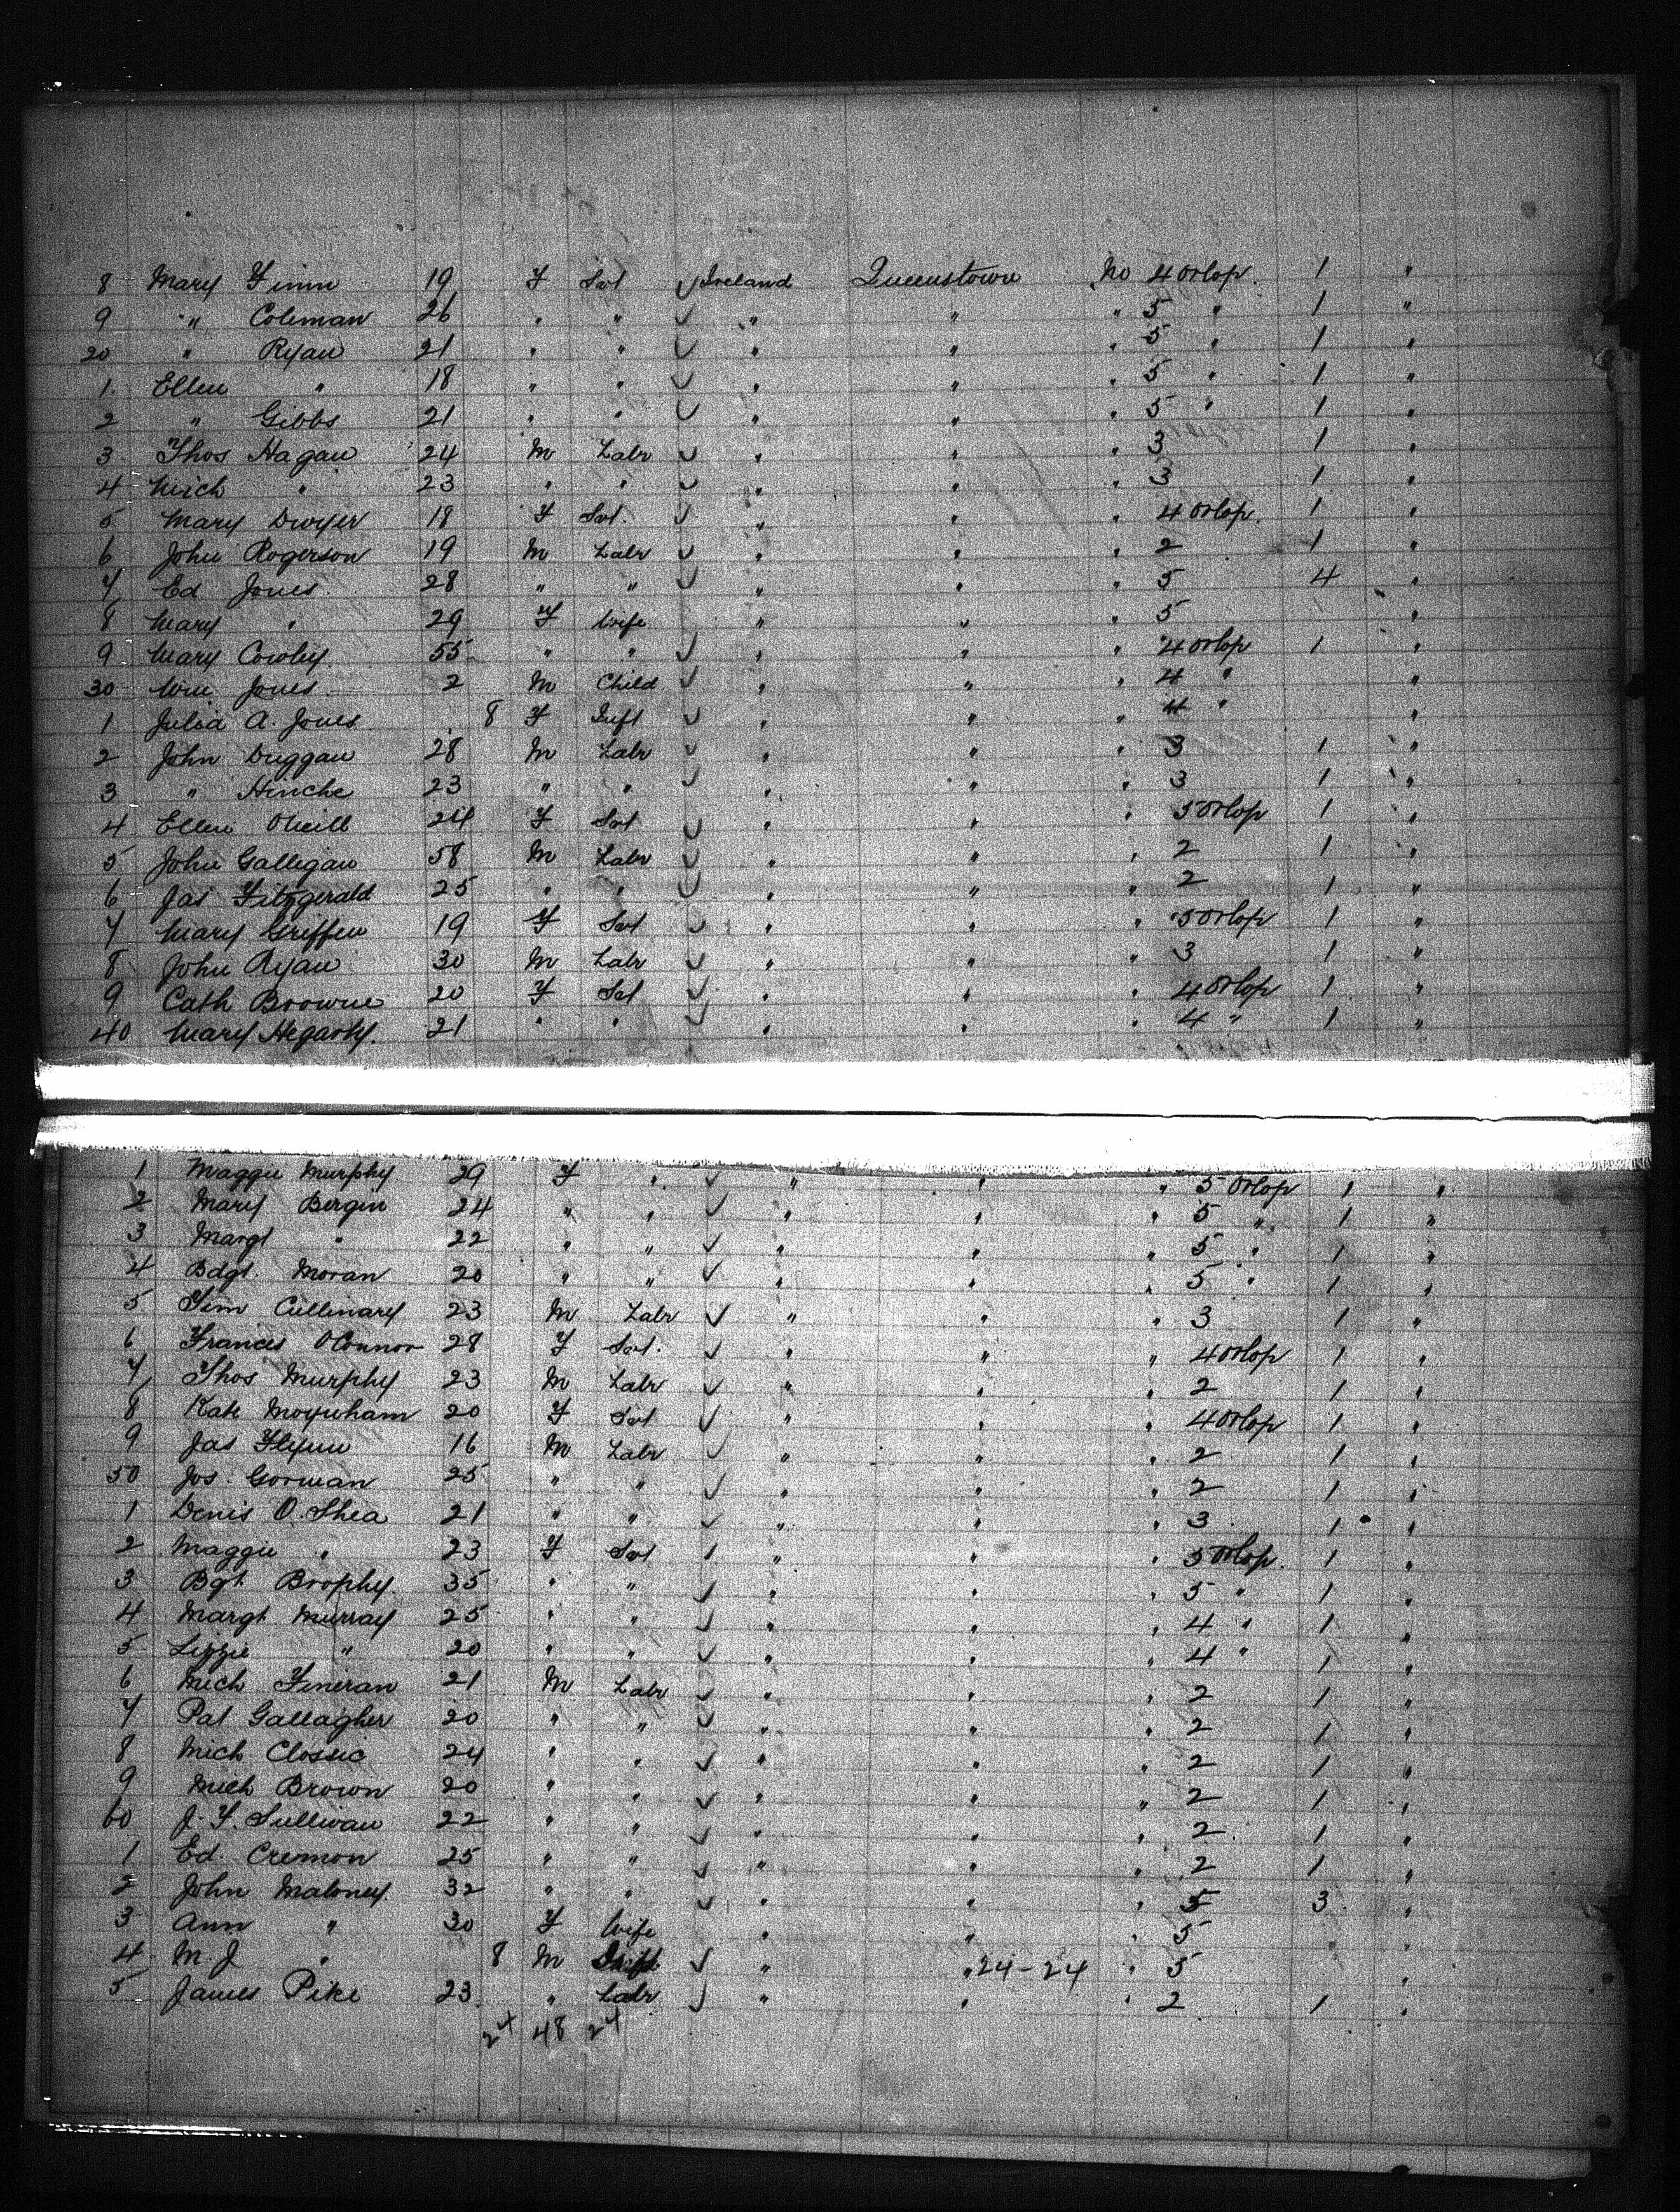 8 Mary Finn 19 F Svt ✓ Ireland Queenstown No 4 Orlop. 1 "
9 " Coleman 26 " " ✓ " " " 5 " 1 "
20 " Ryan 21 " " ✓ " " " 5 " 1 "
1 Ellen " 18 " " ✓ " " " 5 " 1 "
2 " Gibbs 21 " " ✓ " " " 5 " 1 "
3 Thos Hagan 24 M Labr ✓ " " " 3 1 "
4 Mich " 23 " " ✓ " " " 3 1 "
5 Mary Dwyer 18 F Svt. ✓ " " " 4 Orlop. 1 "
6 John Rogerson 19 M Labr ✓ " " " 2 1 "
7 Ed Jones 28 " " ✓ " " " 5 4 "
8 Mary " 29 F Wife " " " 5 "
9 Mary Cowley 55 " " ✓ " " " 4 Orlop 1 "
30 Wm Jones 2 M Child ✓ " " " 4 " "
1 Julia A. Jones 8 F Inft ✓ " " " 4 " "
2 John Duggan 28 M Labr ✓ " " " 3 1 "
3 " Hinche 23 " " ✓ " " " 3 1 "
4 Ellen ONeill 24 F Svt ✓ " " " 5 Orlop 1 "
5 John Galligan 58 M Labr ✓ " " " 2 1 "
6 Jas Fitzgerald 25 " " ✓ " " " 2 1 "
7 Mary Griffen 19 F Svt ✓ " " " 5 Orlop 1 "
8 John Ryan 30 M Labr ✓ " " " 3 1 "
9 Cath Browne 20 F Svt ✓ " " " 4 Orlop 1 "
40 Mary Hegarty. 21 " " ✓ " " " 4 " 1 "
1 Maggie Murphy 29 F " ✓ " " " 5 Orlop 1 "
2 Mary Bergin 24 " " ✓ " " " 5 " 1 "
3 Margt " 22 " " ✓ " " " 5 " 1 "
4 Bdgt. Moran 20 " " ✓ " " " 5 " 1 "
5 Tim Cullinary 23 M Labr ✓ " " " 3 1 "
6 Frances OConnor 28 F Svt. ✓ " " " 4 Orlop 1 "
7 Thos Murphy 23 M Labr ✓ " " " 2 1 "
8 Kate Moynham 20 F Svt ✓ " " " 4 Orlop 1 "
9 Jas Flynn 16 M Labr ✓ " " " 2 1 "
50 Jos. Gorman 25 " " ✓ " " " 2 1 "
1 Denis O. Shea 21 " " ✓ " " " 3 1 "
2 Maggie " 23 F Svt ✓ " " " 5 Orlop. 1 "
3 Bgt Brophy 35 " " ✓ " " " 5 " 1 "
4 Margt Murray 25 " " ✓ " " " 4 " 1 "
5 Lizzie " 20 " " ✓ " " " 4 " 1 "
6 Mich Fineran 21 M Labr ✓ " " " 2 1 "
7 Pat Gallagher 20 " " ✓ " " " 2 1 "
8 Mich Classic 24 " " ✓ " " " 2 1 "
9 Mich Brown 20 " " ✓ " " " 2 1 "
60 J. F. Sullivan 22 " " ✓ " " " 2 1 "
1 Ed. Cremon 25 " " ✓ " " " 2 1 "
2 John Maloney 32 " " ✓ " " " 5 3 "
3 Ann " 30 F Wife " " " 5 "
4 M. J " 8 M Inft ✓ " " 24-24 " 5 "
5 James Pike 23 " Labr ✓ " " " 2 1 "
24 48 24